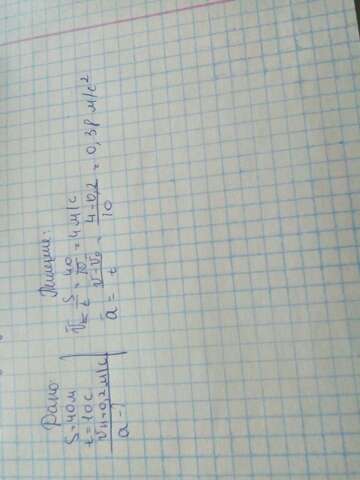 Дано
S=40м
t=10с
Vн=0,2м/с
a-?
Решение:
V=S/t=40/10=4м/с
a=V-V₀/t=4-0,2/10=0,38м/с²